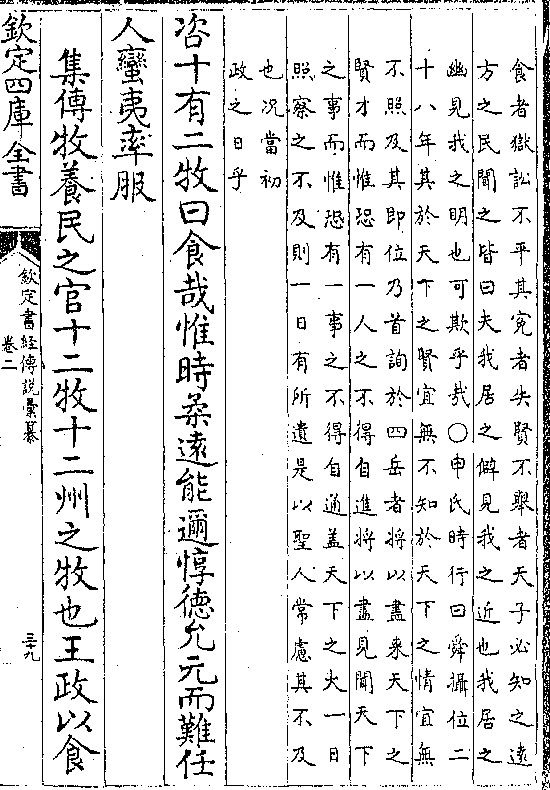 食者獄訟不平其寃者失賢不舉者天子必知之遠
方之民聞之皆曰夫我居之僻見我之近也我居之
幽見我之明也可欺乎哉〇申氏時行曰舜攝位二
十八年其於天下之賢宜無不知於天下之情宜無
不照及其即位乃首詢於四岳者將以盡來天下之
賢才而惟恐有一人之不得自進將以盡見聞天下
之事而惟恐有一事之不得自通盖天下之大一日
照察之不及則一日有所遺是以聖人常慮其不及
也况當初
政之日乎
咨十有二牧曰食哉惟時柔遠能邇惇德允元而難任
人蠻夷率服
集傳牧養民之官十二牧十二州之牧也王政以食
欽定四庫全書
欽定書經傳說彙纂
卷二
三十九